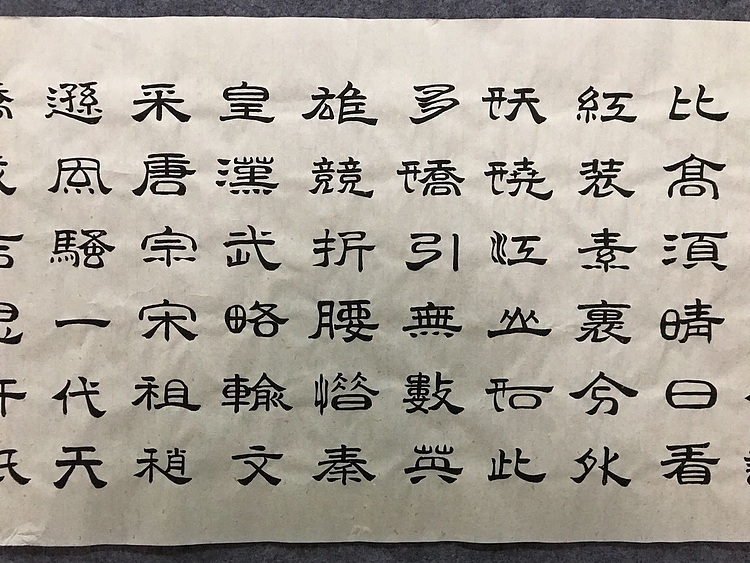 比高須晴日看
紅装素裹分外
妖嬈江山如此
多嬌引無數英
雄競折腰惜秦
皇漢武略輸文
采唐宗宋祖稍
遜風騷一代天